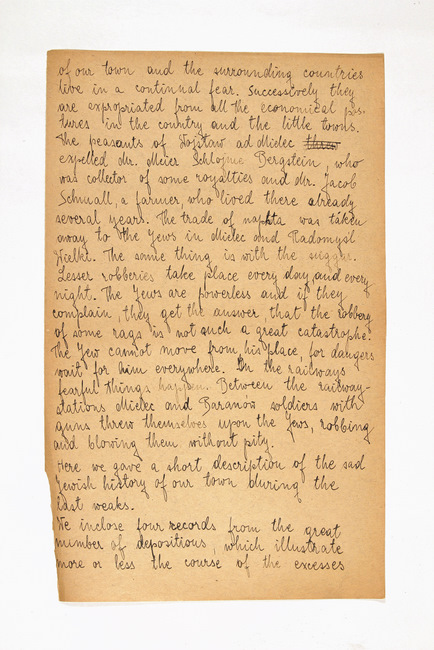 of our town and the surrounding countries
live in a continual fear. Successively they
are expropriated from all the economical pos-
tures in the country and the little towns.
The peasants of ad Mielec threw
expelled Mr. Meier Schlojme Bergstein, who
was collector of some royalties and Mr. Jacob
Schnall, a farmer who lived there already
several years. The trade of naphta was taken
away to the Jews in Mielec and Radomysl
Wielki. The same thing is with the suggar.
Lesser robberies take place every day and every
night. The Jews are powerless and if they
complain, they get the answer that the robbery
of some rags is not such a great catastrophe.
The Jew cannot move from his place, for dangers
wait for him everywhere. In the railways
fearful things happen. Between the railway-
stations Mielec and Baranów soldiers with
guns threw themselves upon the Jews, robbing
and blowing them without pity.
Here we gave a short description of the sad
Jewish history of our town during the
last weaks.
We inclose four records from the great
number of depositions, which illustrate
more or less the course of the excesses